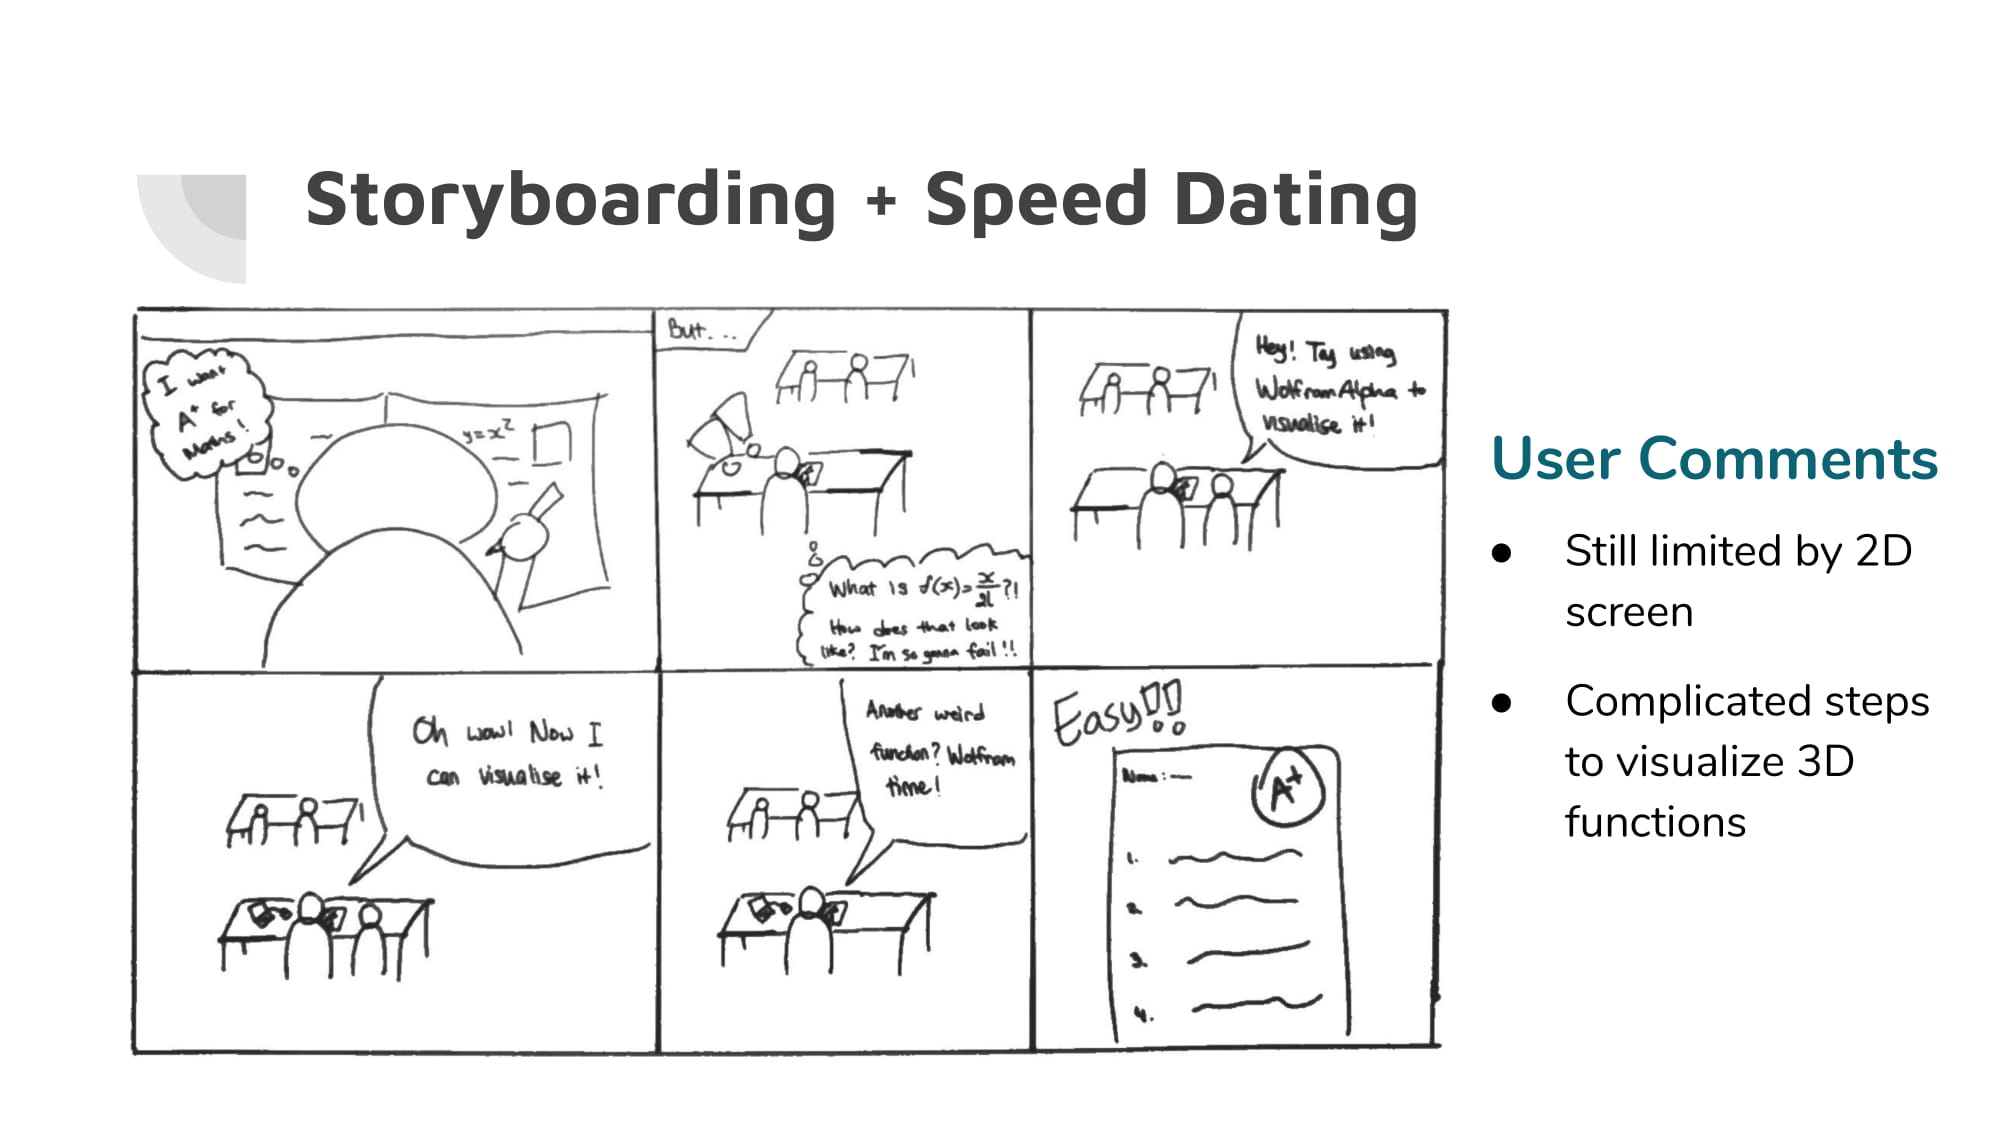 Storyboarding + Speed Dating
I want
A+ for
Maths!
y=x²
But...
What is f(x)=x/2?!
How does that look
like? I'm so gonna fail!!
Hey! Try using
WolframAlpha to
visualise it!
Oh wow! Now I
can visualise it!
Another weird
function? Wolfram
time!
Easy!!
Name:
A+
1.
2.
3.
4.
User Comments
● Still limited by 2D
screen
● Complicated steps
to visualize 3D
functions